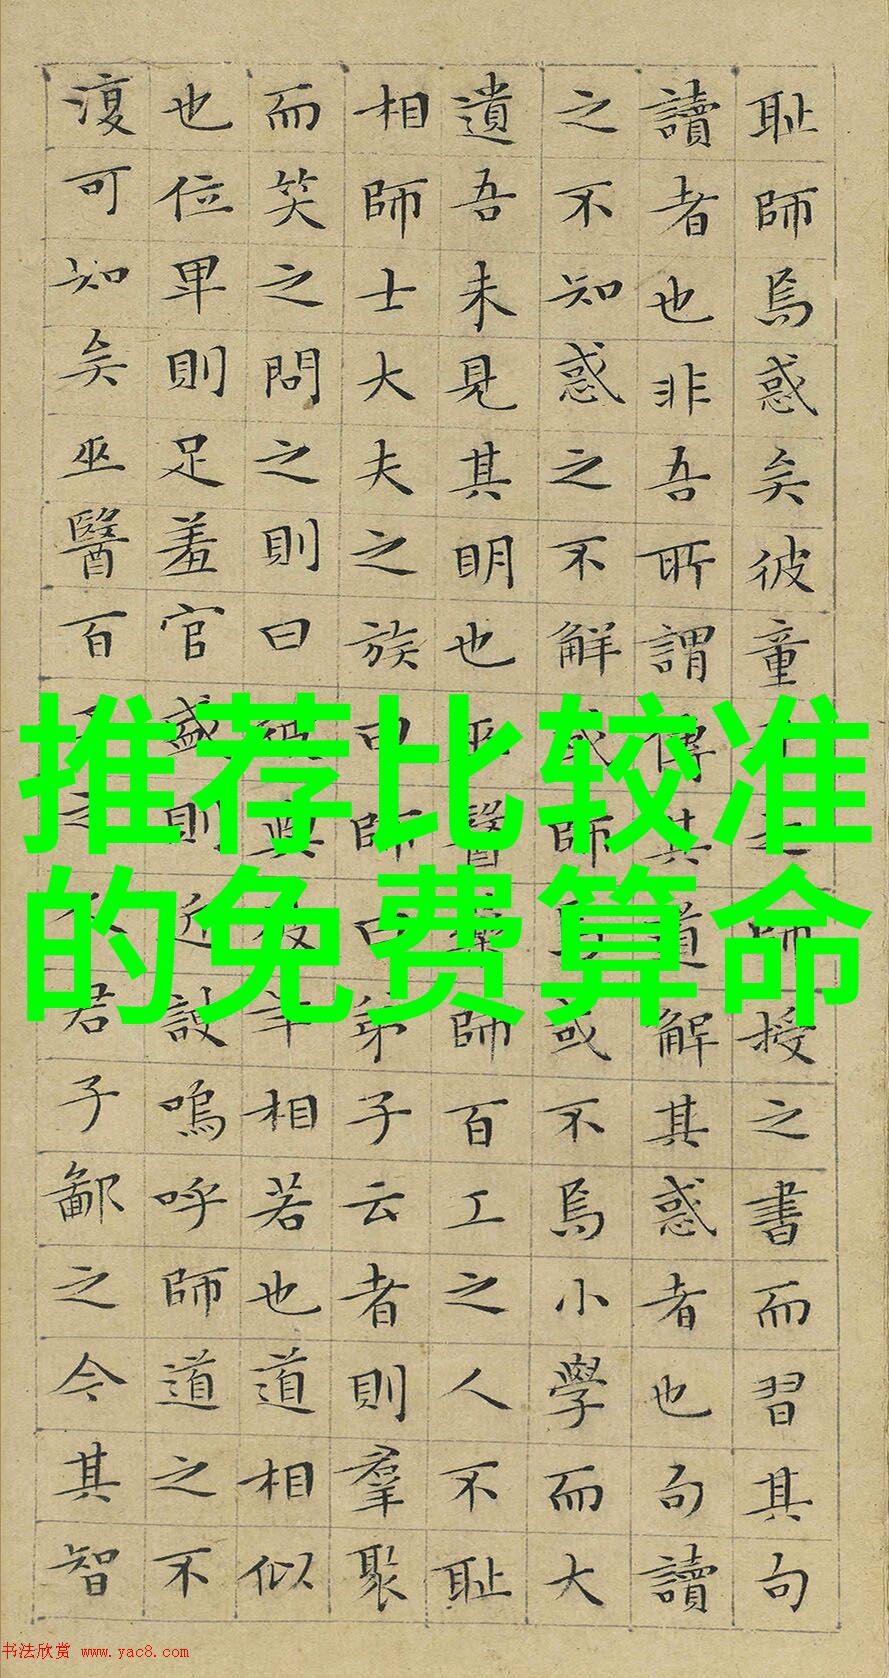 推荐比较准
的免费算命
耻師焉惑矣彼童之師授之書而習其句
讀者也非吾所謂傳其道解其惑者也句讀
之不知惑之不解或師焉或不焉小學而大
遺吾未見其明也巫醫師百工之人不耻
相師士大夫之族曰師曰弟子云者則羣聚
而笑之問之則曰彼與彼年相若也道相似
也位卑則足羞官盛則近諛嗚呼師道之不
復可知矣巫醫百之君子鄙之今其智
书法欣赏 www.yac8.com